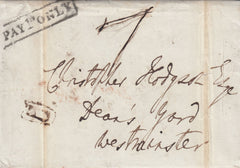 PAYD ONLY
7
Christopher Hodgson Esqr
Dean's Yard
Westminster